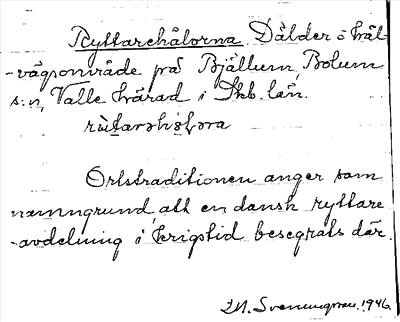 Ryttarehålorna. Dälder å hål-
-vägsområde på Bjällum, Bolum
s:n, Valle härad i Skb. län.

Ortstraditionen anger som
namngrund, att en dansk ryttare
-avdelning i krigstid besegrats där.
Sveningsson. 1946.